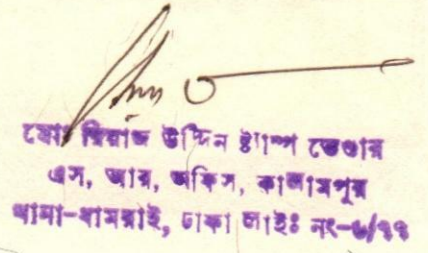 মোঃ মিরাজ উদ্দিন ষ্ট্যাম্প ভেণ্ডার
এস, আর, অফিস, কালামপুর
থানা-ধামরাই, ঢাকা লাইঃ নং-৬/৭৭